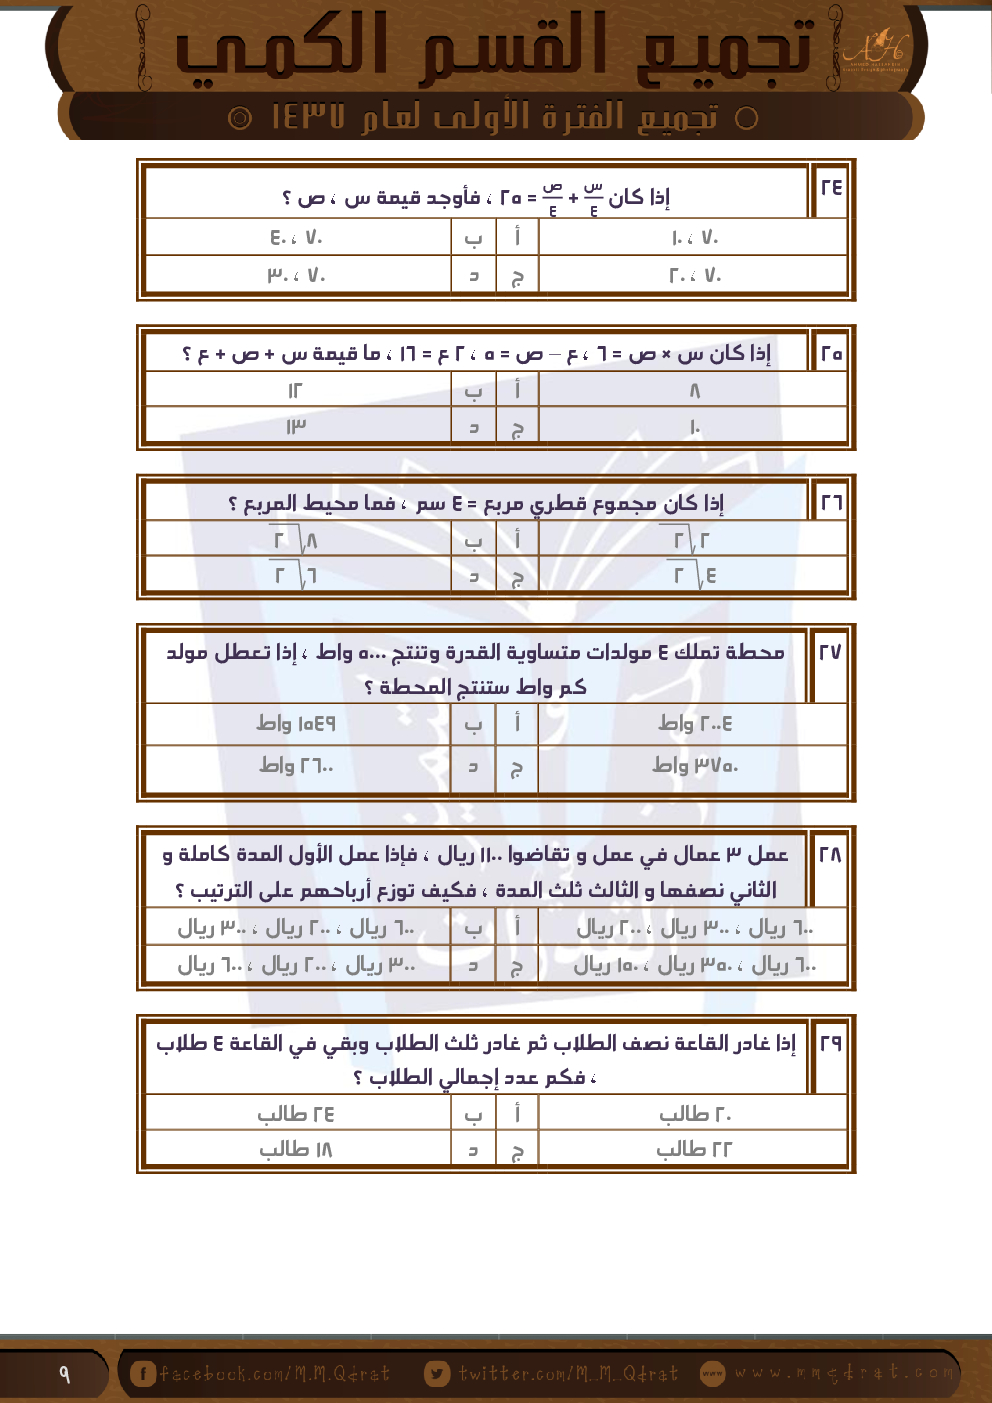 تجميع القسم الكمي
تجميع الفترة الأولى لعام ١٤٣٧
٢٤
إذا كان س/٤ + ص/٤ = ٢٥ ، فأوجد قيمة س ، ص ؟
٧٠ ، ١٠ أ ب ٧٠ ، ٤٠
٧٠ ، ٢٠ ج د ٧٠ ، ٣٠
٢٥
إذا كان س × ص = ٦ ، ع – ص = ٥ ، ٢ ع = ١٦ ، ما قيمة س + ص + ع ؟
٨ أ ب ١٢
١٠ ج د ١٣
٢٦
إذا كان مجموع قطري مربع = ٤ سم ، فما محيط المربع ؟
٢√٢ أ ب ٨√٢
٤√٢ ج د ٦√٢
٢٧
محطة تملك ٤ مولدات متساوية القدرة وتنتج ٥٠٠٠ واط ، إذا تعطل مولد
كم واط ستنتج المحطة ؟
٢٠٠٤ واط أ ب ١٥٤٩ واط
٣٧٥٠ واط ج د ٢٦٠٠ واط
٢٨
عمل ٣ عمال في عمل و تقاضوا ١١٠٠ ريال ، فإذا عمل الأول المدة كاملة و
الثاني نصفها و الثالث ثلث المدة ، فكيف توزع أرباحهم على الترتيب ؟
٦٠٠ ريال ، ٣٠٠ ريال ، ٢٠٠ ريال أ ب ٦٠٠ ريال ، ٢٠٠ ريال ، ٣٠٠ ريال
٦٠٠ ريال ، ٣٥٠ ريال ، ١٥٠ ريال ج د ٣٠٠ ريال ، ٢٠٠ ريال ، ٦٠٠ ريال
٢٩
إذا غادر القاعة نصف الطلاب ثم غادر ثلث الطلاب وبقي في القاعة ٤ طلاب
، فكم عدد إجمالي الطلاب ؟
٢٠ طالب أ ب ٢٤ طالب
٢٢ طالب ج د ١٨ طالب
٩
facebook.com/M.M.Qdrat
twitter.com/M_M_Qdrat
www.mmqdrat.com